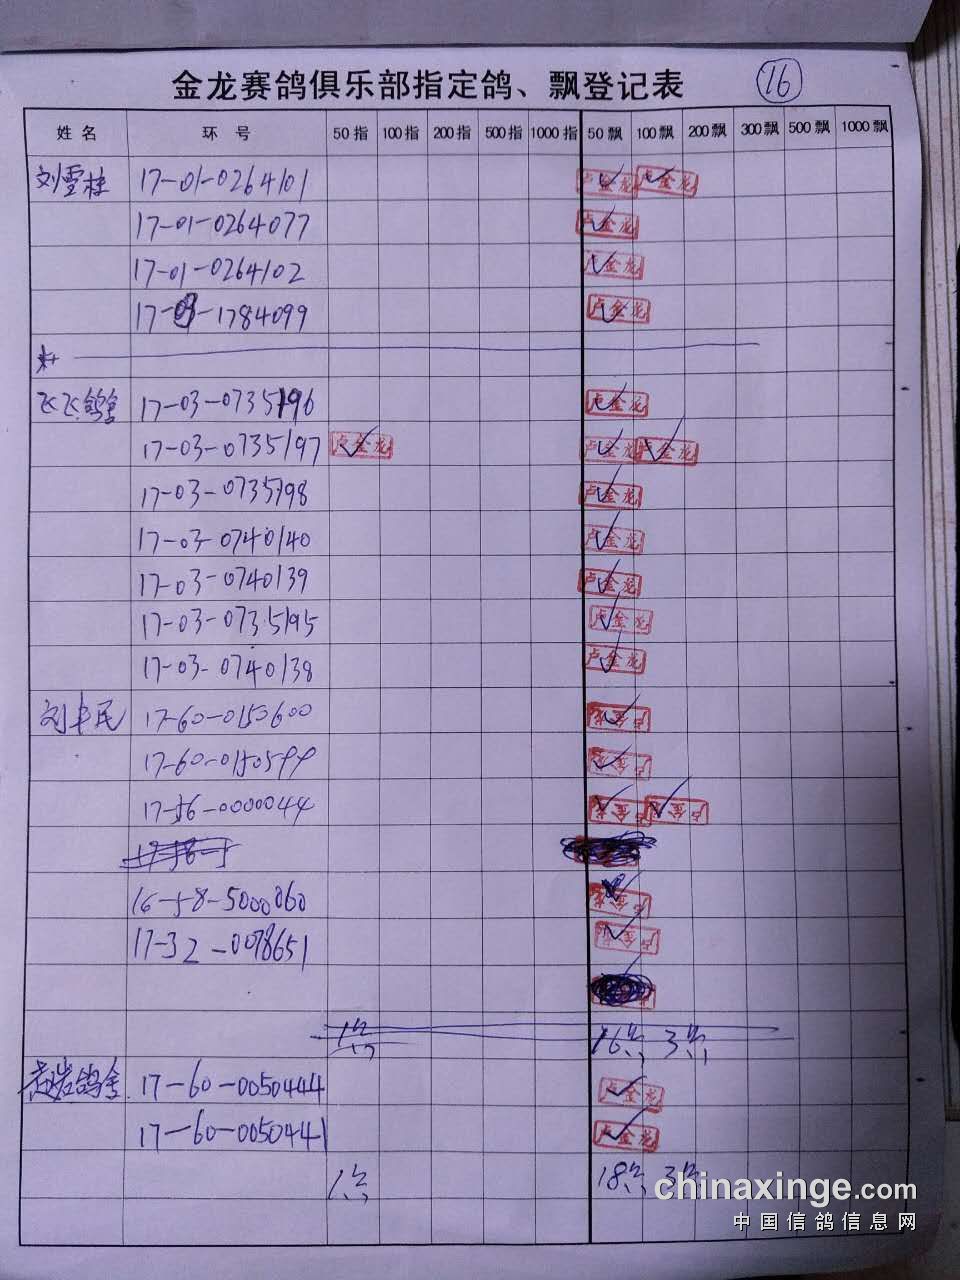 金龙赛鸽俱乐部指定鸽、飘登记表 16
姓名 环号 50指 100指 200指 500指 1000指 50飘 100飘 200飘 300飘 500飘 1000飘
刘雪桂 17-01-0264101 卢金龙 卢金龙
17-01-0264077 卢金龙
17-01-0264102 卢金龙
17-03-1784099 卢金龙
飞飞鸽舍 17-03-0735196 卢金龙
17-03-0735197 卢金龙 卢金龙 卢金龙
17-03-0735198 卢金龙
17-03-0740140 卢金龙
17-03-0740139 卢金龙
17-03-0735195 卢金龙
17-03-0740138 卢金龙
刘丰民 17-60-0150600 卢金龙
17-60-0150599 卢金龙
17-56-0000044 卢金龙 卢金龙
16-58-5000060 卢金龙
17-32-0078651 卢金龙
1 16 3
鸽舍 17-60-0050444 卢金龙
17-60-0050441 卢金龙
1 18 3
chinaxinge.com
中国信鸽信息网